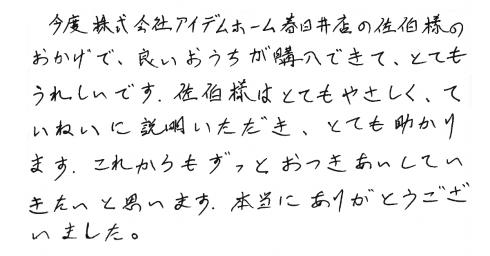 今度株式会社アイデムホーム春日井店の佐伯様の
おかげで、良いおうちが購入できて、とても
うれしいです.佐伯様はとてもやさしく、て
いねいに説明いただき、とても助かり
ます.これからもずっとおつきあいしてい
きたいと思います.本当にありがとうござ
いました。